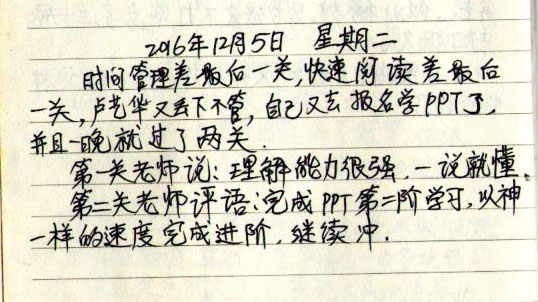 2016年12月5日 星期二
时间管理差最后一关,快速阅读差最后
一关,卢艺华又丢下不管,自己又去报名学PPT了,
并且一晚就过了两关.
第一关老师说:理解能力很强,一说就懂.
第二关老师评语:完成PPT第二阶学习,以神
一样的速度完成进阶,继续冲.